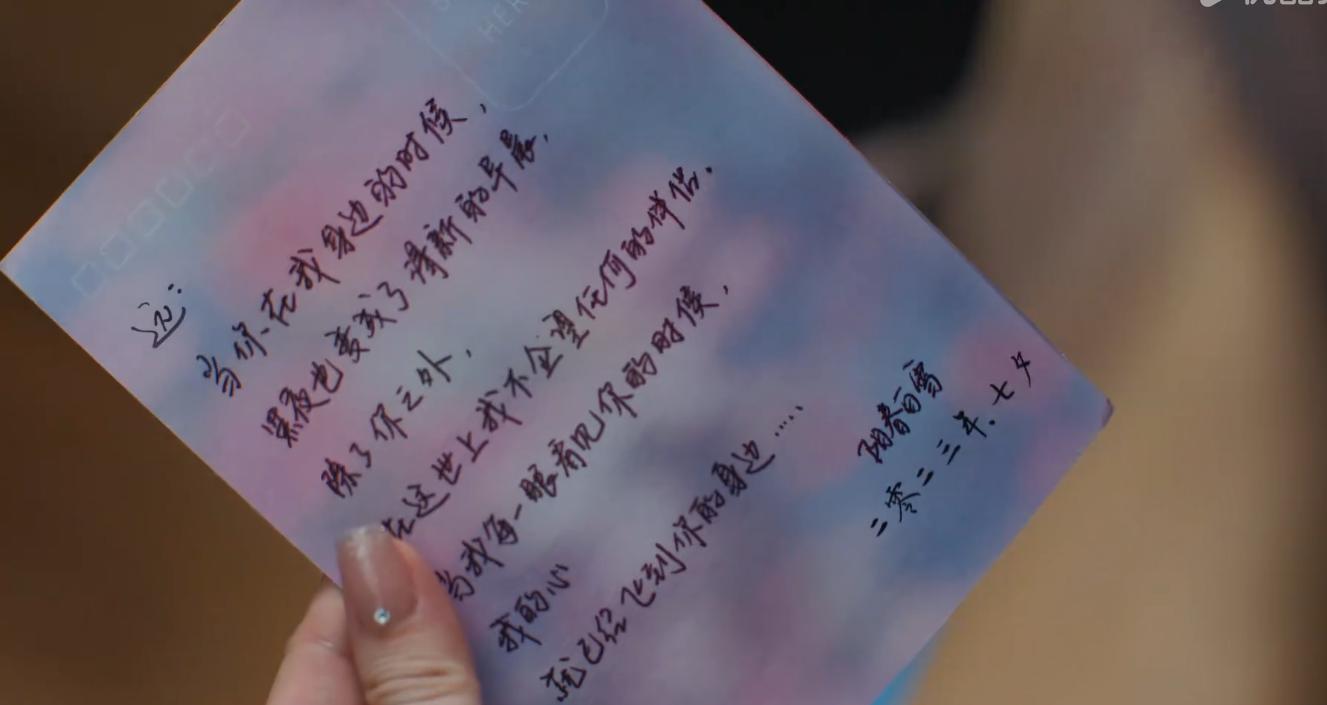 HER
远：
当你在我身边的时候，
黑夜也变成了清新的早晨.
除了你之外，
在这世上我不企望任何的伴侣.
当我每一眼看见你的时候，
我的心
就已经飞到你的身边……
阳春白雪
二零二三年.七夕